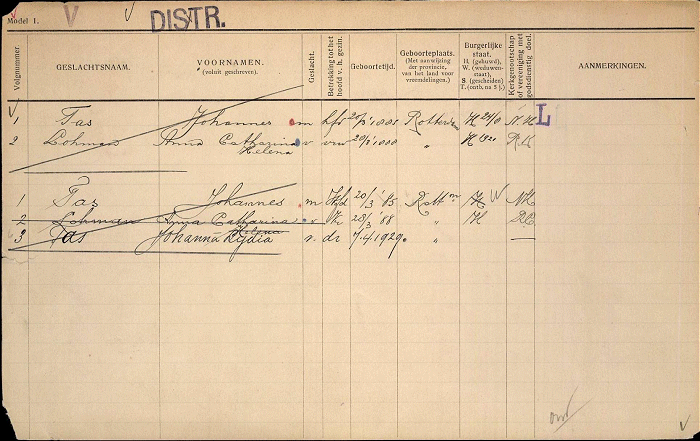 Model 1.
V
DISTR.
Volgnummer.
GESLACHTSNAAM.
VOORNAMEN.
(voluit geschreven).
Geslacht.
Betrekking tot het hoofd v. h. gezin.
Geboortetijd.
Geboorteplaats.
(Met aanwijzing der provincie, van het land voor vreemdelingen.)
Burgerlijke staat.
H. (gehuwd), W. (weduwenstaat), S. (gescheiden) T. (ontb. na 5 j.).
Kerkgenootschap of vereeniging met godsdienstig doel.
AANMERKINGEN.
1 Tas Johannes m hfd Rotterdam H N.H. L
2 Lohman Anna Catharina Helena v vrw " H R.K.
1 Tas Johannes m Hfd 20/3 '85 Rottm H W NH
2 Lohman Anna Catharina Helena v 28/3 '88 " H
3 Tas Johanna Lydia v. dr 7.4.1929. "